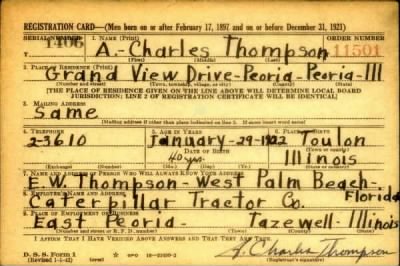 REGISTRATION CARD—(Men born on or after February 17, 1897 and on or before December 31, 1921)
SERIAL NUMBER 1. NAME (Print) ORDER NUMBER
1406 A.-Charles Thompson 11501
(First) (Middle) (Last)
2. PLACE OF RESIDENCE (Print)
Grand View Drive-Peoria-Peoria-Ill
(Number and street) (Town, township, village, or city) (County) (State)
[THE PLACE OF RESIDENCE GIVEN ON THE LINE ABOVE WILL DETERMINE LOCAL BOARD
JURISDICTION; LINE 2 OF REGISTRATION CERTIFICATE WILL BE IDENTICAL]
3. MAILING ADDRESS
Same
[Mailing address if other than place indicated on line 2. If same insert word same]
4. TELEPHONE 5. AGE IN YEARS 6. PLACE OF BIRTH
2-3610 January-29-1902 Toulon
DATE OF BIRTH
40 yrs. Illinois
(Exchange) (Number) (Mo.) (Day) (Yr.) (State or country)
7. NAME AND ADDRESS OF PERSON WHO WILL ALWAYS KNOW YOUR ADDRESS
E.W. Thompson-West Palm Beach-
Florida
8. EMPLOYER'S NAME AND ADDRESS
Caterpillar Tractor Co.
9. PLACE OF EMPLOYMENT OR BUSINESS
East Peoria- Tazewell-Illinois
(Number and street or R. F. D. number) (Town) (County) (State)
I AFFIRM THAT I HAVE VERIFIED ABOVE ANSWERS AND THAT THEY ARE TRUE.
D. S. S. Form 1
(Revised 1-1-42) (over)
A. Charles Thompson